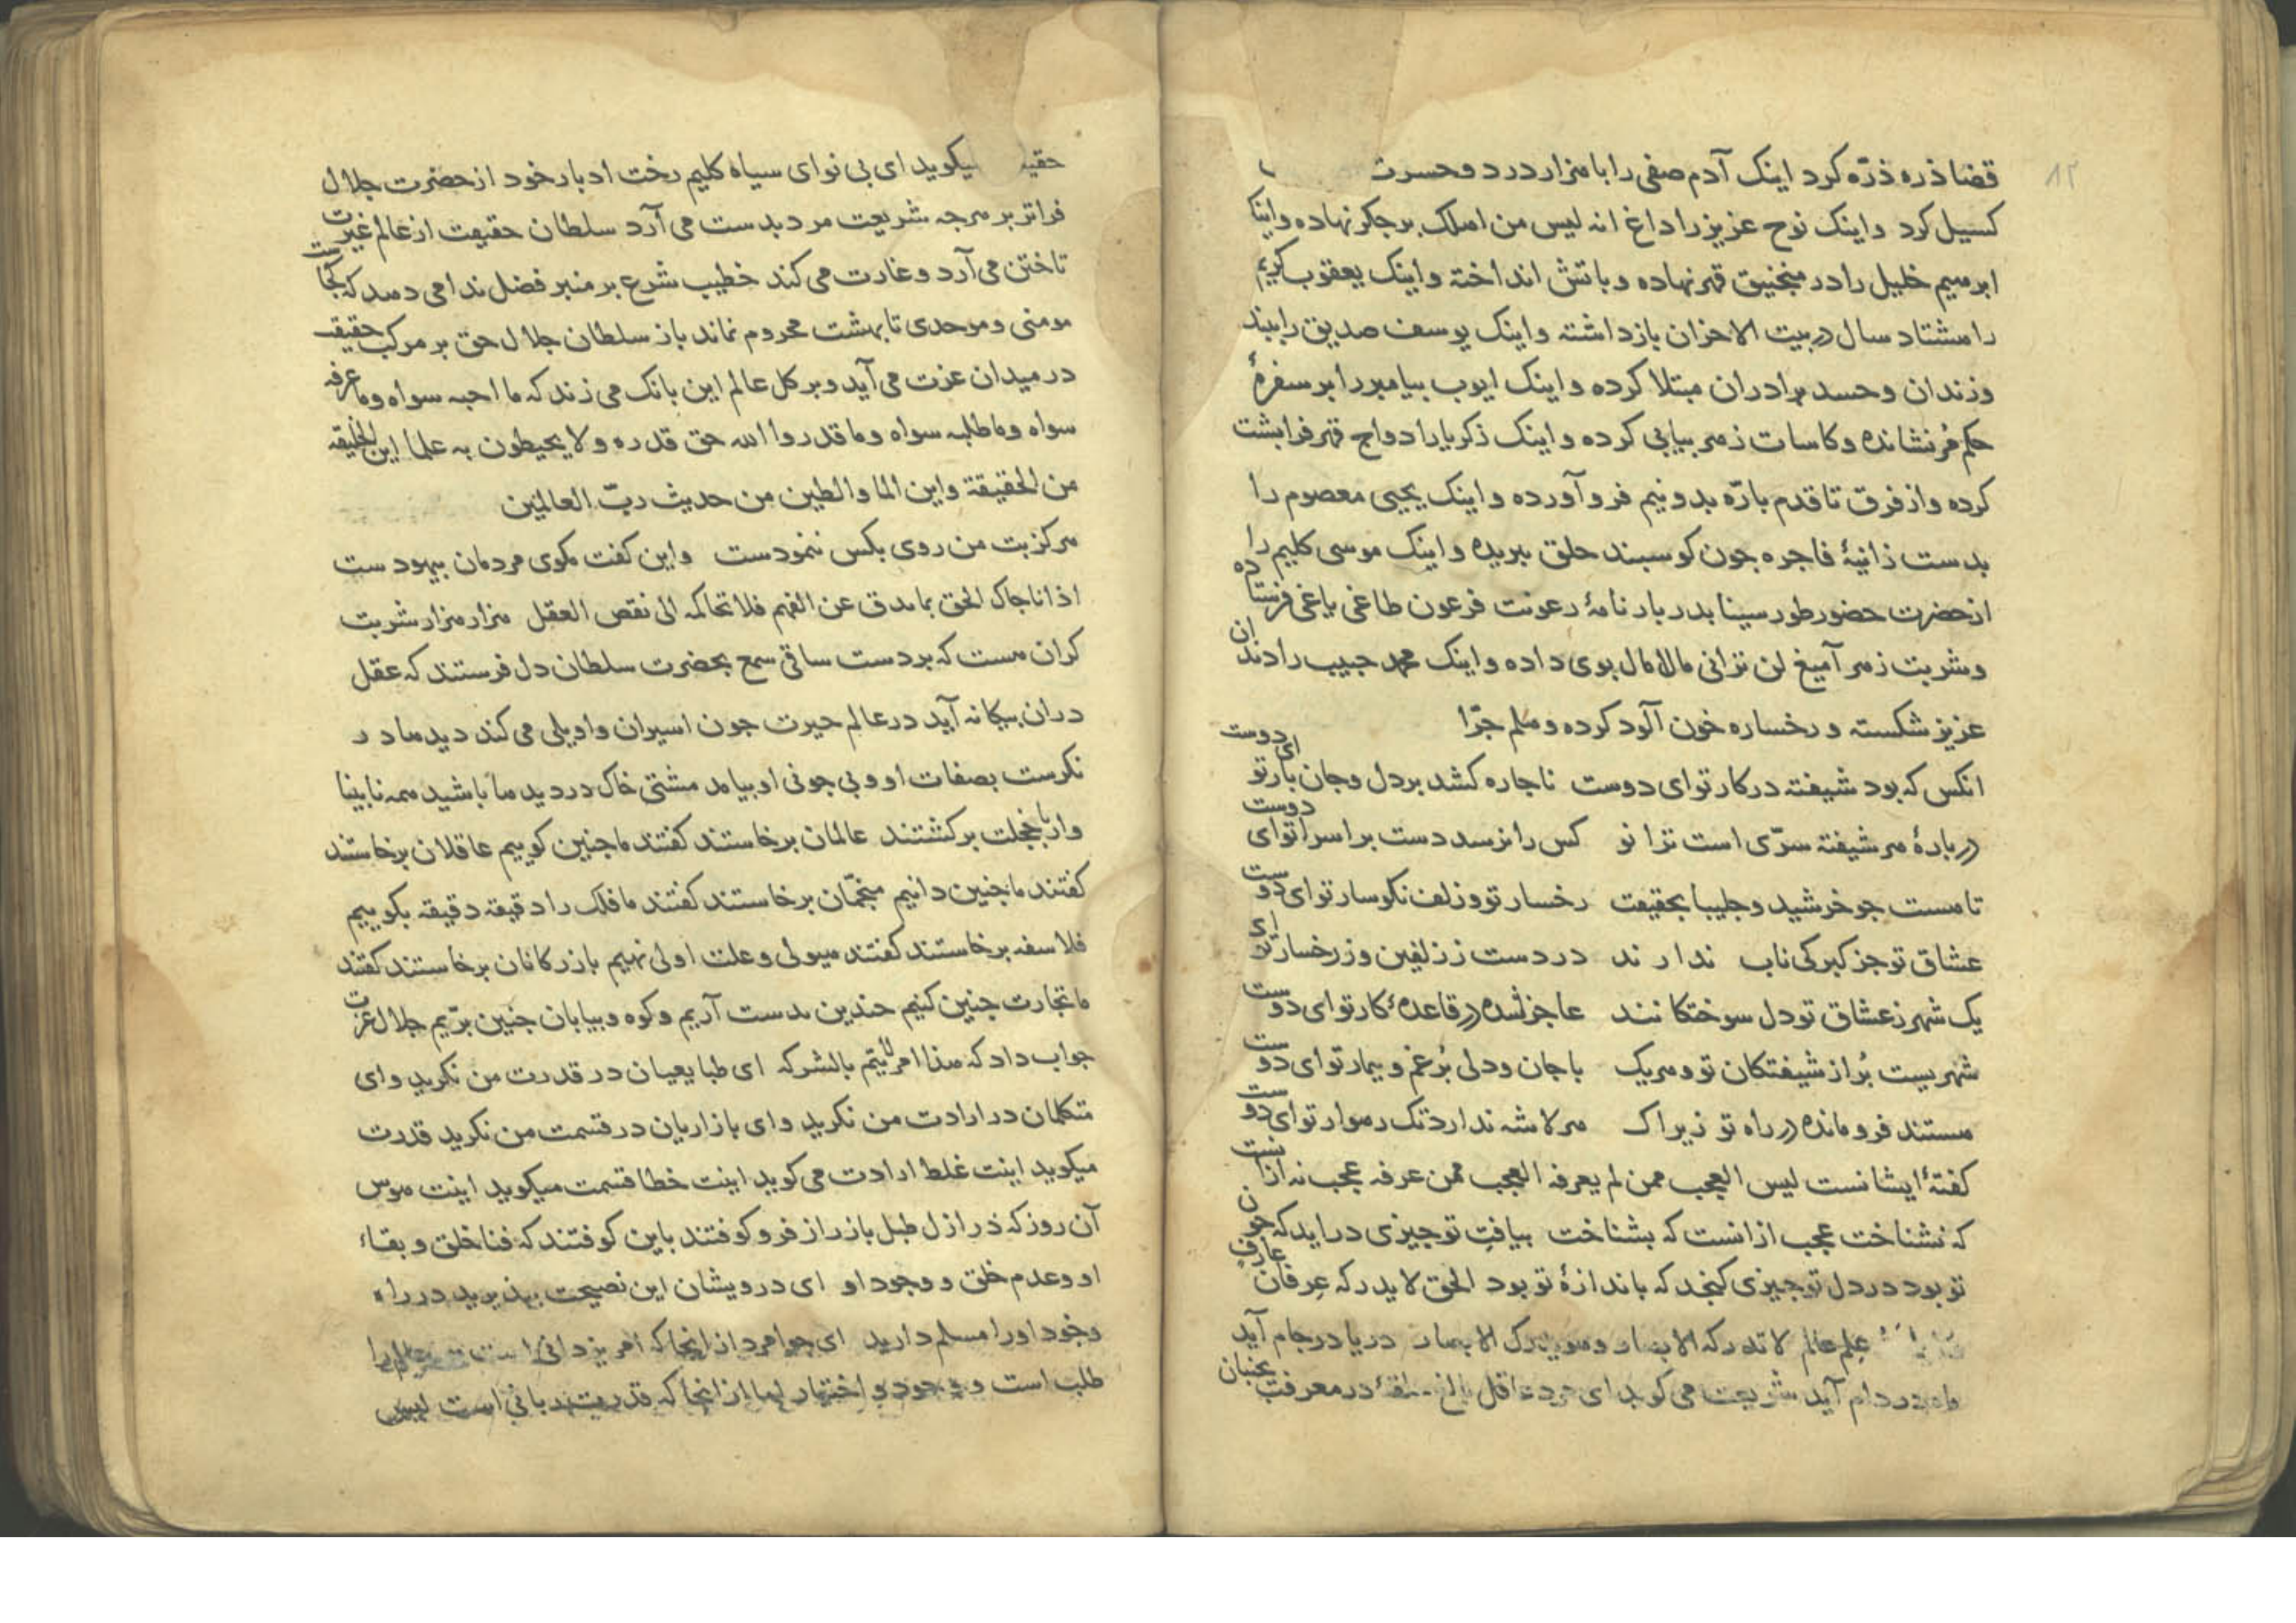 ۱۲
قضا ذره ذرّه کرد اینک آدم صفی را با هزار درد و حسرت
کسیل کرد و اینک نوح عزیز را داغ انه لیس من اهلک بر جکر نهاده و اینک
ابرهیم خلیل را در منجنیق قهر نهاده و باتش انداخته و اینک یعقوب کریم
را هشتاد سال در بیت الاحزان بازداشته و اینک یوسف صدیق را ببند
و زندان و حسد برادران مبتلا کرده و اینک ایوب پیامبر را بر سفرهٔ
حکم مُر نشانده و کاسات زهر بیابی کرده و اینک زکریا را دواج قهر فرابشت
کرده و از فرق تا قدم بارّه بدو نیم فرو آورده و اینک یحیی معصوم را
بدست زانیهٔ فاجره جون کوسبند حلق ببریده و اینک موسی کلیم را
از حضرت حضور طور سینا بدر بار نامهٔ رعونت فرعون طاغی یاغی فرستاده
و شربت زهر آمیغ لن ترانی مالامال بوی داده و اینک محمد حبیب را دندان
عزیز شکسته و رخساره خون آلود کرده و هلم جرّا
انکس که بود شیفته در کار تو ای دوست ناجاره کشد بر دل و جان بار تو ای دوست
در بارهٔ هر شیفته سرّی است ترا نو کس را نرسد دست بر اسرار تو ای دوست
تا هست جو خرشید و جلیبا بحقیقت رخسار تو و زلف نکوسار تو ای دوست
عشاق تو جز کبرکی ناب ندارند در دست ز زلفین و ز رخسار تو ای
یک شهر ز عشاق تو دل سوختکانند عاجز شده در قاعدهٔ کار تو ای دوست
شهریست بُر از شیفتکان تو و هریک با جان و دلی بُر غم و بیمار تو ای دوست
هستند فرو مانده در راه تو زیراک هر لاشه ندارد تک رهوار تو ای دوست
کفتهٔ ایشانست لیس العجب ممن لم یعرفه العجب ممن عرفه عجب نه ازانست
که نشناخت عجب ازانست که بشناخت بیافتِ تو جیزی دراید که جون
تو بود در دل تو جیزی کنجد که باندازهٔ تو بود الحق لا یدرکه عِرفان عارفٍ
علم عالم لا تدرکه الابصار و هو یدرک الابصار دریا در جام آید
در دام آید شریعت می کوید ای مرد عاقل بالغ در معرفت بجنبان
حقیقت میکوید ای بی نوای سیاه کلیم رخت ادبار خود از حضرت جلال
فراتر بر هرجه شریعت مرد بدست می آرد سلطان حقیقت از عالم غیرت
تاختن می آرد و غارت می کند خطیب شرع بر منبر فضل ندا می دهد که کجاست
مومنی و موحدی تا بهشت محروم نماند باز سلطان جلال حق بر مرکب حقیقت
در میدان عزت می آید و بر کل عالم این بانک می زند که ما احبه سواه و ما عرفه
سواه و ما طلبه سواه و ما قدروا الله حق قدره و لا یحیطون به علما این الخلیقة
من الحقیقة و این الما و الطین من حدیث ربّ العالمین
هرکز بت من روی بکس ننمودست واین کفت مکوی مردمان بیهودست
اذا ناجاک الحق بما یدق عن الفهم فلا تحاکمه الی نقص العقل هزار هزار شربت
کران هست که بر دست ساقی سمع بحضرت سلطان دل فرستند که عقل
دران بیکانه آید در عالم حیرت جون اسیران واویلی می کند دیدها در
نکرست بصفات او و بی جونی او بیامد مشتی خاک در دیدها باشید همه نابینا
وار با خجلت برکشتند عالمان برخاستند کفتند ما جنین کوییم عاقلان برخاستند
کفتند ما جنین دانیم منجّمان برخاستند کفتند ما فلک را دقیقه دقیقه بکوییم
فلاسفه برخاستند کفتند هیولی و علت اولی نهیم بازرکانان برخاستند کفتند
ما تجارت جنین کنیم جندین بدست آریم و کوه و بیابان جنین برّیم جلال عزت
جواب داد که هذا امر لا یتم بالشرکه ای طبایعیان در قدرت من نکرید و ای
متکلمان در ارادت من نکرید و ای بازاریان در قسمت من نکرید قدرت
میکوید اینت غلط ارادت می کوید اینت خطا قسمت میکوید اینت هوس
آن روز که در ازل طبل باز راز فرو کوفتند باین کوفتند که فنا خلق و بقاء
او و عدم خلق و وجود او ای درویشان این نصیحت ببذیرید در راه
وجود او را مسلم دارید ای جوامرد از انجا که امر یزدانی است
طلب است و وجود و اختیار اما از انجا که قدرت ربانی است لیس